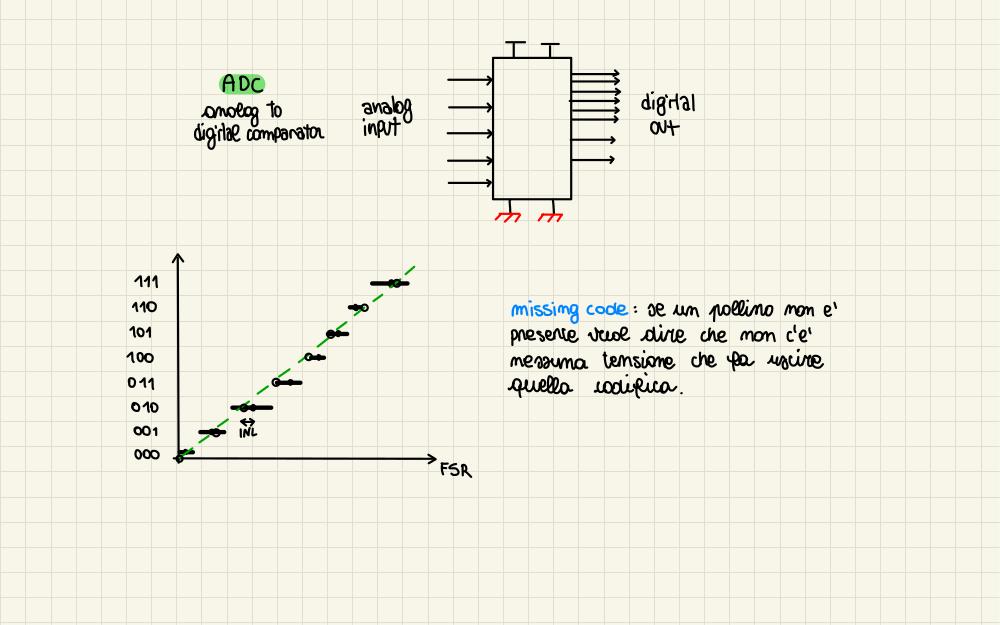 ADC
analog to
digital comparator
analog
input
digital
out
111
110
101
100
011
010
001
000
INL
FSR
missing code: se un pallino non e'
presente vuol dire che non c'e'
nessuna tensione che fa uscire
quella codifica.